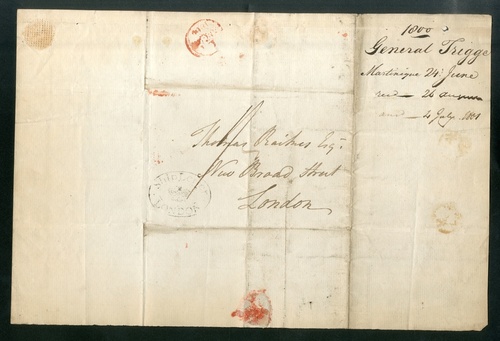 1800
General Trigge
Martinique 24: June
recd — 26 August
ansd — 2 July. 1801
Thomas Raikes Esq.
New Broad Street
London
SHIP LETTER
LONDON